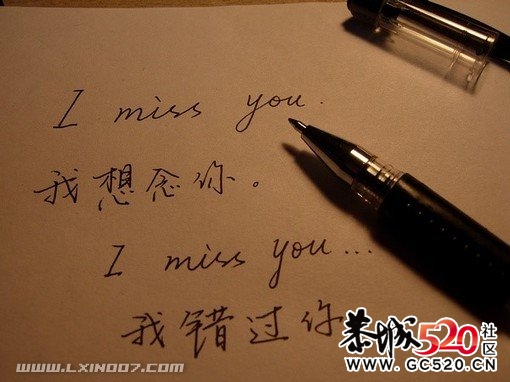 I miss you.
我想念你。
I miss you...
我错过你
恭城520社区
www.GC520.CN
WWW.LXINOO7.COM